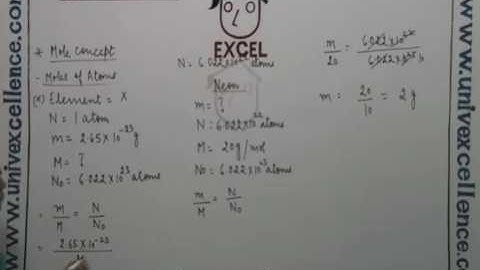 www.univexcellence.com
* Mole Concept
- Moles of Atoms
(*) Element = X
N = 1 atom
m = 2.65 × 10⁻²³ g
M = ?
N₀ = 6.022 × 10²³ atoms
= m/M = N/N₀
= 2.65 × 10⁻²³ / M
EXCEL
atoms
Neon
m = ?
N = 6.022 × 10²² atoms
M = 20 g/mol
N₀ = 6.022 × 10²³ atoms
m/M = N/N₀
m/20 = 6.022 × 10²² / 6.022 × 10²³ 10
m = 20/10 = 2 g
www.univexcellence.com